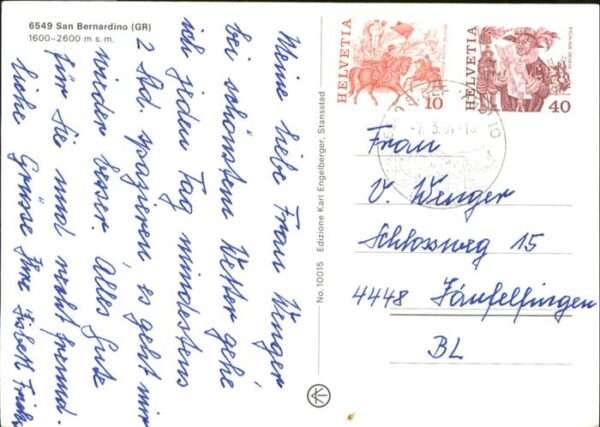 6549 San Bernardino (GR)
1600–2600 m s. m.
Meine liebe Frau Wenger,
bei schönstem Wetter gehe
ich jeden Tag mindestens
2 Std. spazieren, es geht mir
wieder besser. Alles Gute
für Sie und recht freund-
liche Grüsse Ihre Lisbeth
No. 10015 Edizione Karl Engelberger, Stansstad
HELVETIA
10
HELVETIA
40
Frau
V. Wenger
Schlossweg 15
4448 Läufelfingen
BL